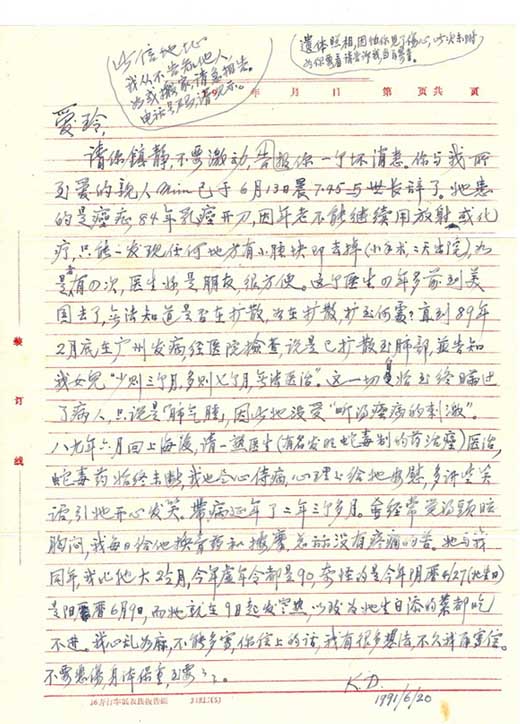 此信地址
我从不告和他人,
如或搬家,请急相告。
电话号码,请见示。
遗体照相,因怕你见了伤心,此次未附
如你要看请告诉我当可寄。
年 月 日 第 页共 页
爱玲,
请你镇静,不要激动,告报你一个坏消息。你与我所
至爱的亲人mimi已于6月13日晨7.45与世长辞了。她患
的是癌症,84年乳癌开刀,因年老不能继续用放射或化
疗,只能一发现任何地方有小肿块即去掉(小手术,二天出院),为
是者有四次,医生你是朋友,很方便。这个医生四年多前到美
国去了,无法知道是否在扩散,如在扩散,扩至何处?直到89年
2月底在广州发病经医院检查,说是已扩散至肺部,並告知
我女儿“少则三个月,多则七个月,无法医治”。这一切始至终瞒过
了病人,只说是“肺气肿”,因此她没受“听得癌病的刺激”。
八九年六月回上海后,请一熟医生(有名发明蛇毒制的药治癌)医治,
蛇毒药始终未断,我也尽心侍病,心理上给她安慰,多讲些笑
话,引她开心发笑。带病延年了二年三个多月。虽经常觉得头眩
胸闷,我每日给他换膏药和按摩,总算没有疼痛的苦。她与我
同年,我比他大2个月,今年虚年令都是90,奇怪的是今年阴厯4/27(她生日)
是阳厯6月9日,而她就在9日起发高热,以致为她生日添的菜都吃
不进。我心乱如麻,不能多写,你信上的话,我有很多想法,不久我再写信。
不要悲伤,身体保重,至要々々。
K.D.
1991/6/20
装
订
线